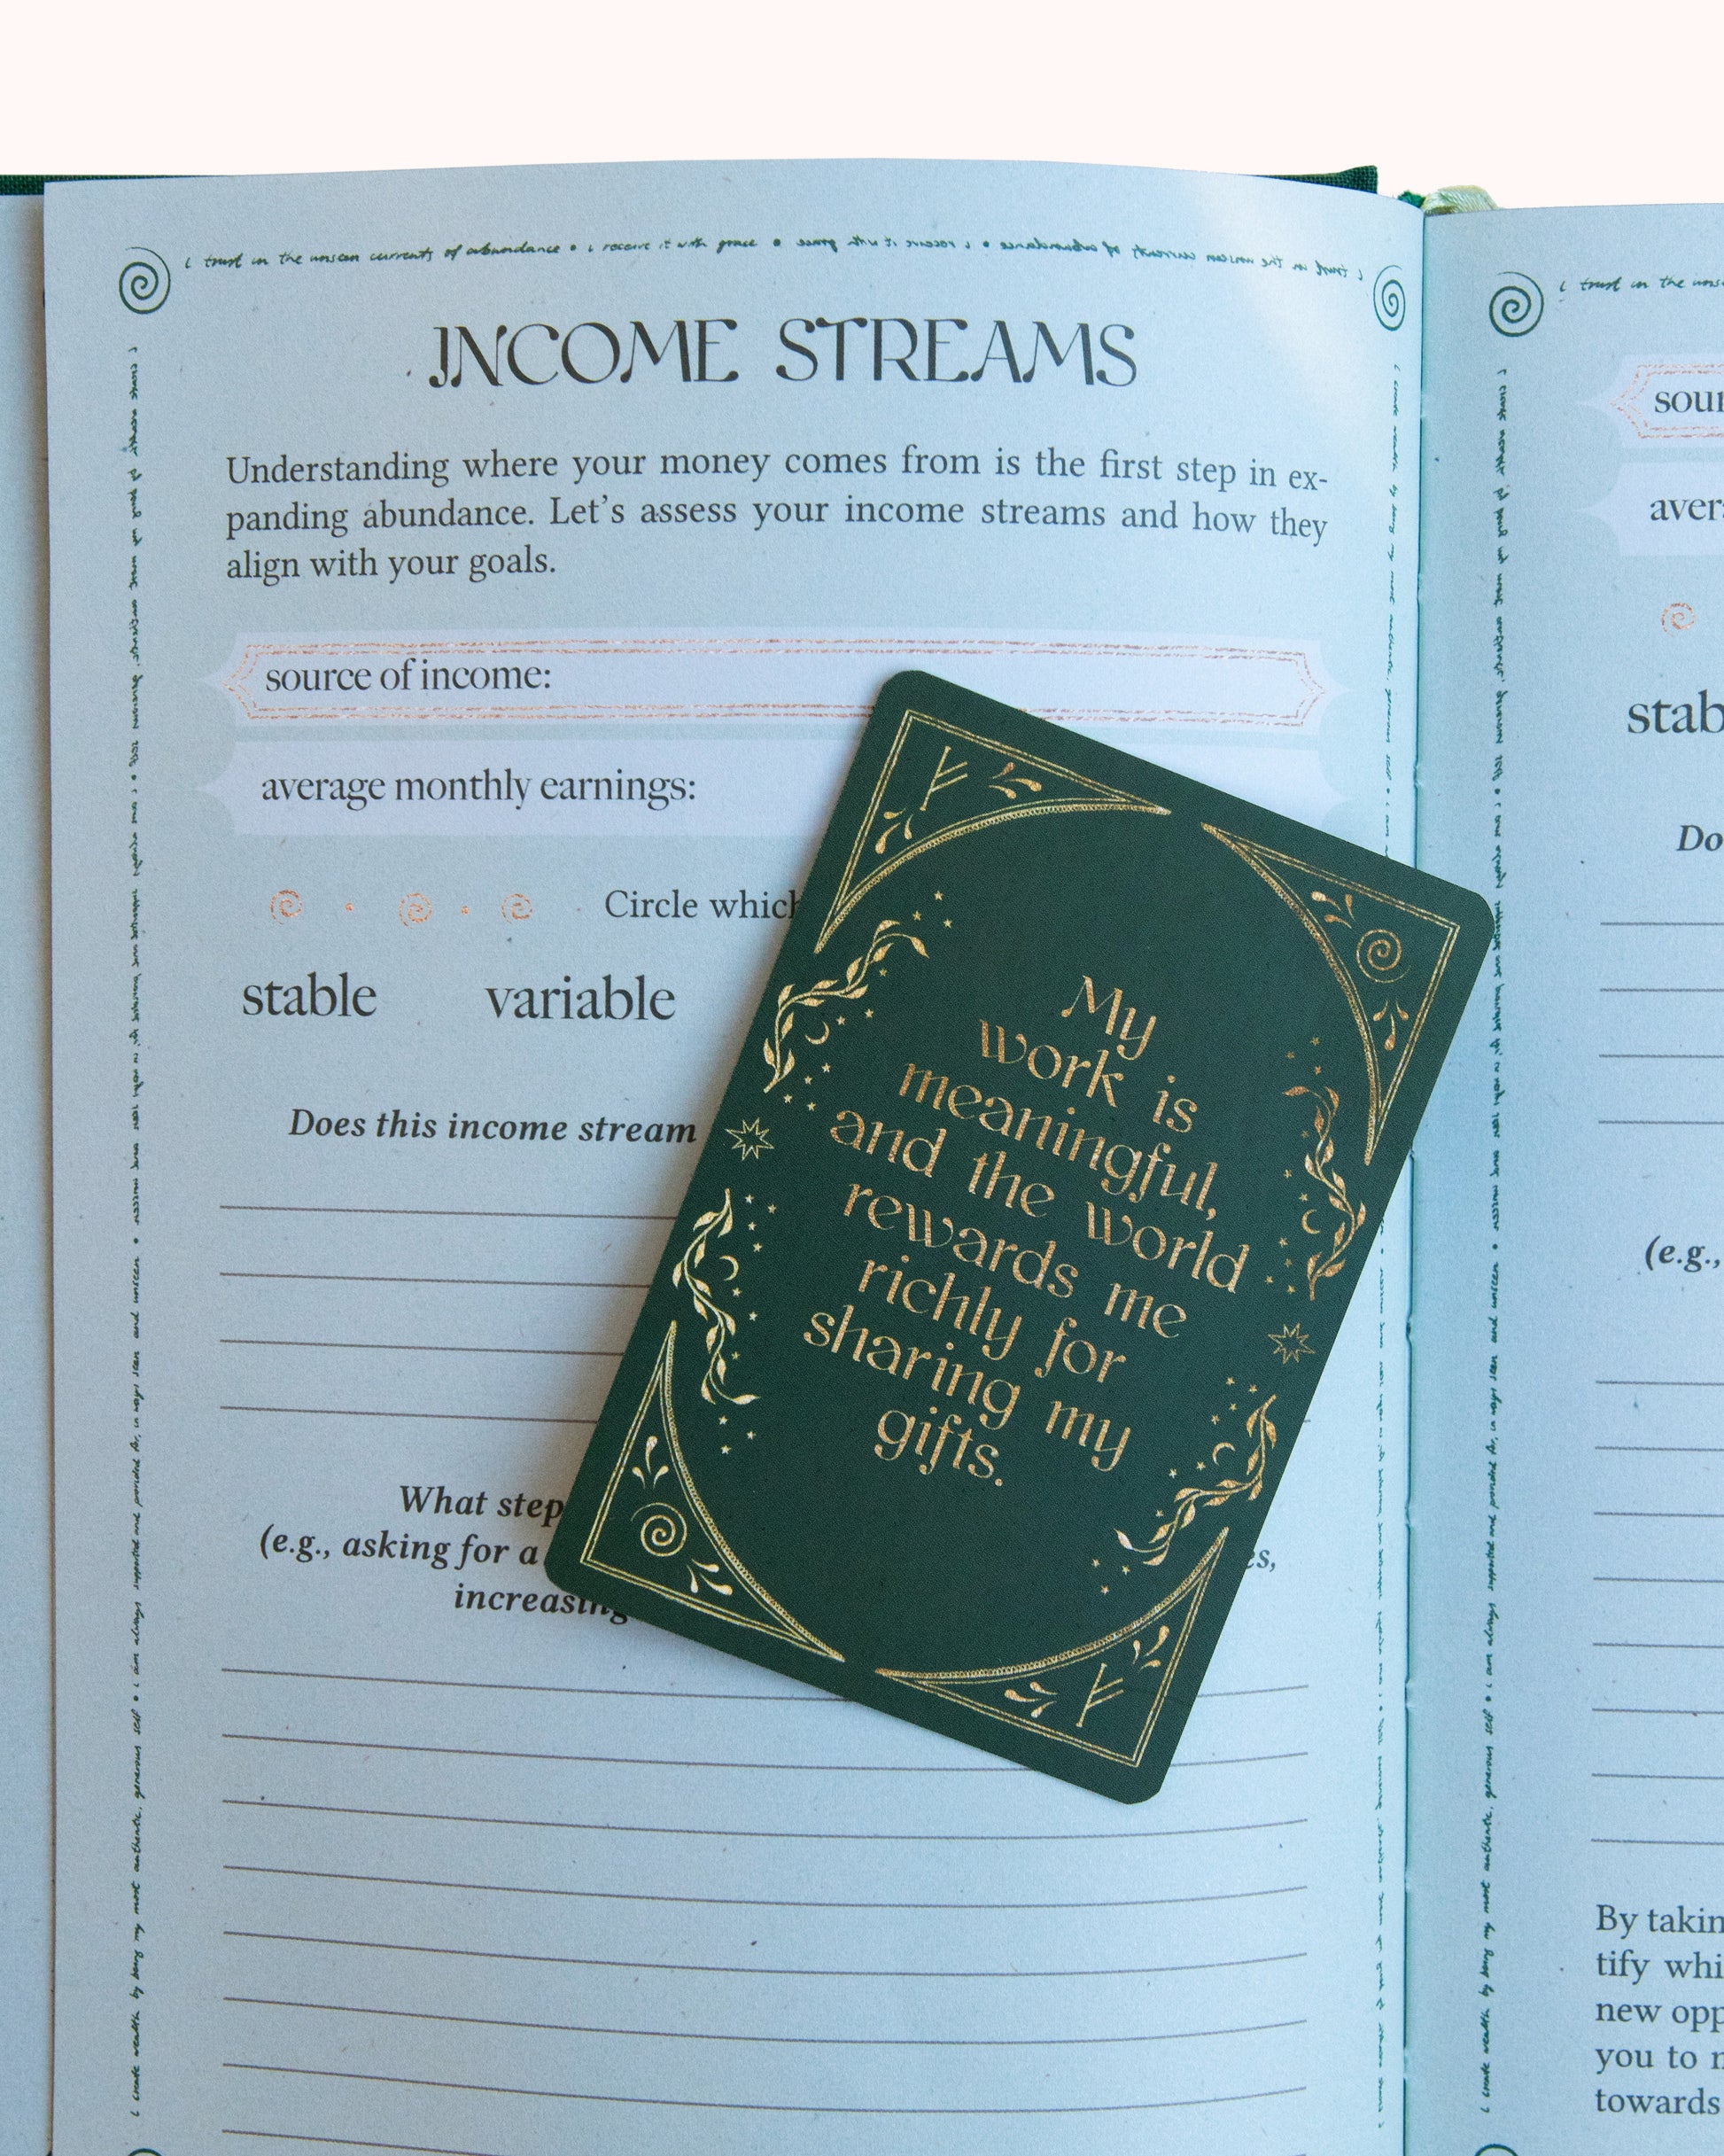 i trust in the unseen currents of abundance • i receive it with grace •
INCOME STREAMS
Understanding where your money comes from is the first step in ex-
panding abundance. Let's assess your income streams and how they
align with your goals.
source of income:
average monthly earnings:
Circle which
stable variable
Does this income stream
What step
(e.g., asking for a
increasing
My
work is
meaningful,
and the world
rewards me
richly for
sharing my
gifts.
i create wealth by being my most authentic, generous self • i am always supported and provided for, in ways seen and unseen •
i trust in the
stab
Do
(e.g.,
By takin
tify whi
new opp
you to
towards